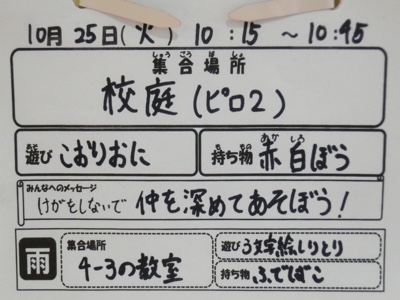 10月25日(火) 10:15 ～10:45
しゅう ごう ば しょ
集合場所
校庭(ピロ2)
あそ
遊び こおりおに
も もの
持ち物 赤白ぼう
あか しろ
みんなへのメッセージ
けがをしないで 仲を深めてあそぼう!
雨
集合場所
4-3の教室
遊び 3文字絵しりとり
持ち物 ふでばこ